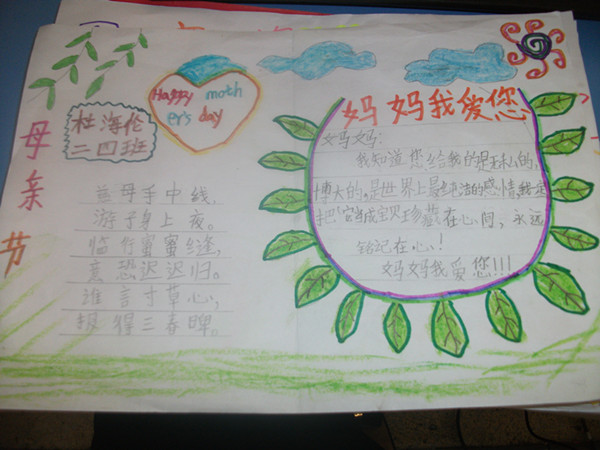 母亲节
杜海伦
二四班
Happy moth
er's day
慈母手中线,
游子身上夜。
临行蜜蜜缝,
意恐迟迟归。
谁言寸草心,
报得三春晖。
妈妈我爱您
妈妈:
我知道您给我的是私的,
博大的,是世界上最纯洁的感情,我定
把它当成宝贝珍藏在心间,永远
铭记在心!
妈妈我爱您!!!